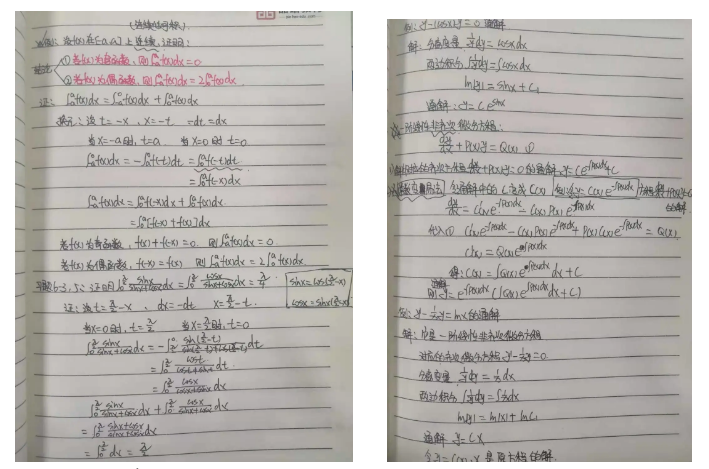 设f(x)在[-a,a]上连续,证明:
①若f(x)为奇函数,则∫₋ₐᵃf(x)dx=0
②若f(x)为偶函数,则∫₋ₐᵃf(x)dx=2∫₀ᵃf(x)dx
证: ∫₋ₐᵃf(x)dx=∫₋ₐ⁰f(x)dx+∫₀ᵃf(x)dx
换元:设t=-x, x=-t dx
当x=-a时,t=a 当x=0时t=0
∫₋ₐ⁰f(x)dx=-∫ₐ⁰f(-t)dt=∫₀ᵃf(-t)dt
=∫₀ᵃf(-x)dx
∫₋ₐᵃf(x)dx=∫₀ᵃf(-x)dx+∫₀ᵃf(x)dx
=∫₀ᵃ[f(-x)+f(x)]dx
若f(x)为奇函数, f(x)+f(-x)=0. 则∫₋ₐᵃf(x)dx=0
若f(x)为偶函数, f(-x)=f(x) 则∫₋ₐᵃf(x)dx=2∫₀ᵃf(x)dx
6-3, 5: 证明∫₀^(π/2) sinx/(sinx+cosx)dx=∫₀^(π/2) cosx/(sinx+cosx)dx=π/4
sinx=cos(π/2-x)
cosx=sin(π/2-x)
证:设t=π/2-x, dx=-dt x=π/2-t.
当x=0时,t=π/2 当x=π/2时,t=0
∫₀^(π/2) sinx/(sinx+cosx)dx=
=∫₀^(π/2) cost/(cost+sint)dt
=∫₀^(π/2) cosx/(cosx+sinx)dx
∫₀^(π/2) sinx/(sinx+cosx)dx+∫₀^(π/2) cosx/(sinx+cosx)dx
=∫₀^(π/2) (sinx+cosx)/(sinx+cosx)dx
=∫₀^(π/2) dx=π/2
y'-(cosx)y=0 通解
解:分离变量,1/y dy=cosxdx
两边积分,∫1/y dy=∫cosxdx
ln|y|=sinx+C₁
通解:y=Ce^(sinx)
一阶线性非齐次微分方程:
dy/dx+P(x)y=Q(x) ①
dy/dx+P(x)y=0的通解
令通解中的C变成C(x)
代入①
=Q(x)
C'(x)=Q(x)e^(∫P(x)dx)
解:C(x)=∫Q(x)e^(∫P(x)dx)dx+C
则y=e^(-∫P(x)dx)(∫Q(x)e^(∫P(x)dx)dx+C)
例: y'-1/x y=lnx的通解
解:它是一阶线性非齐次微分方程
对应的齐次微分方程y'-1/x y=0.
分离变量,1/y dy=1/x dx
两边积分∫1/y dy=∫1/x dx
ln|y|=ln|x|+lnC₁
通解 y=Cx
令y=C(x)·x是原方程的解.